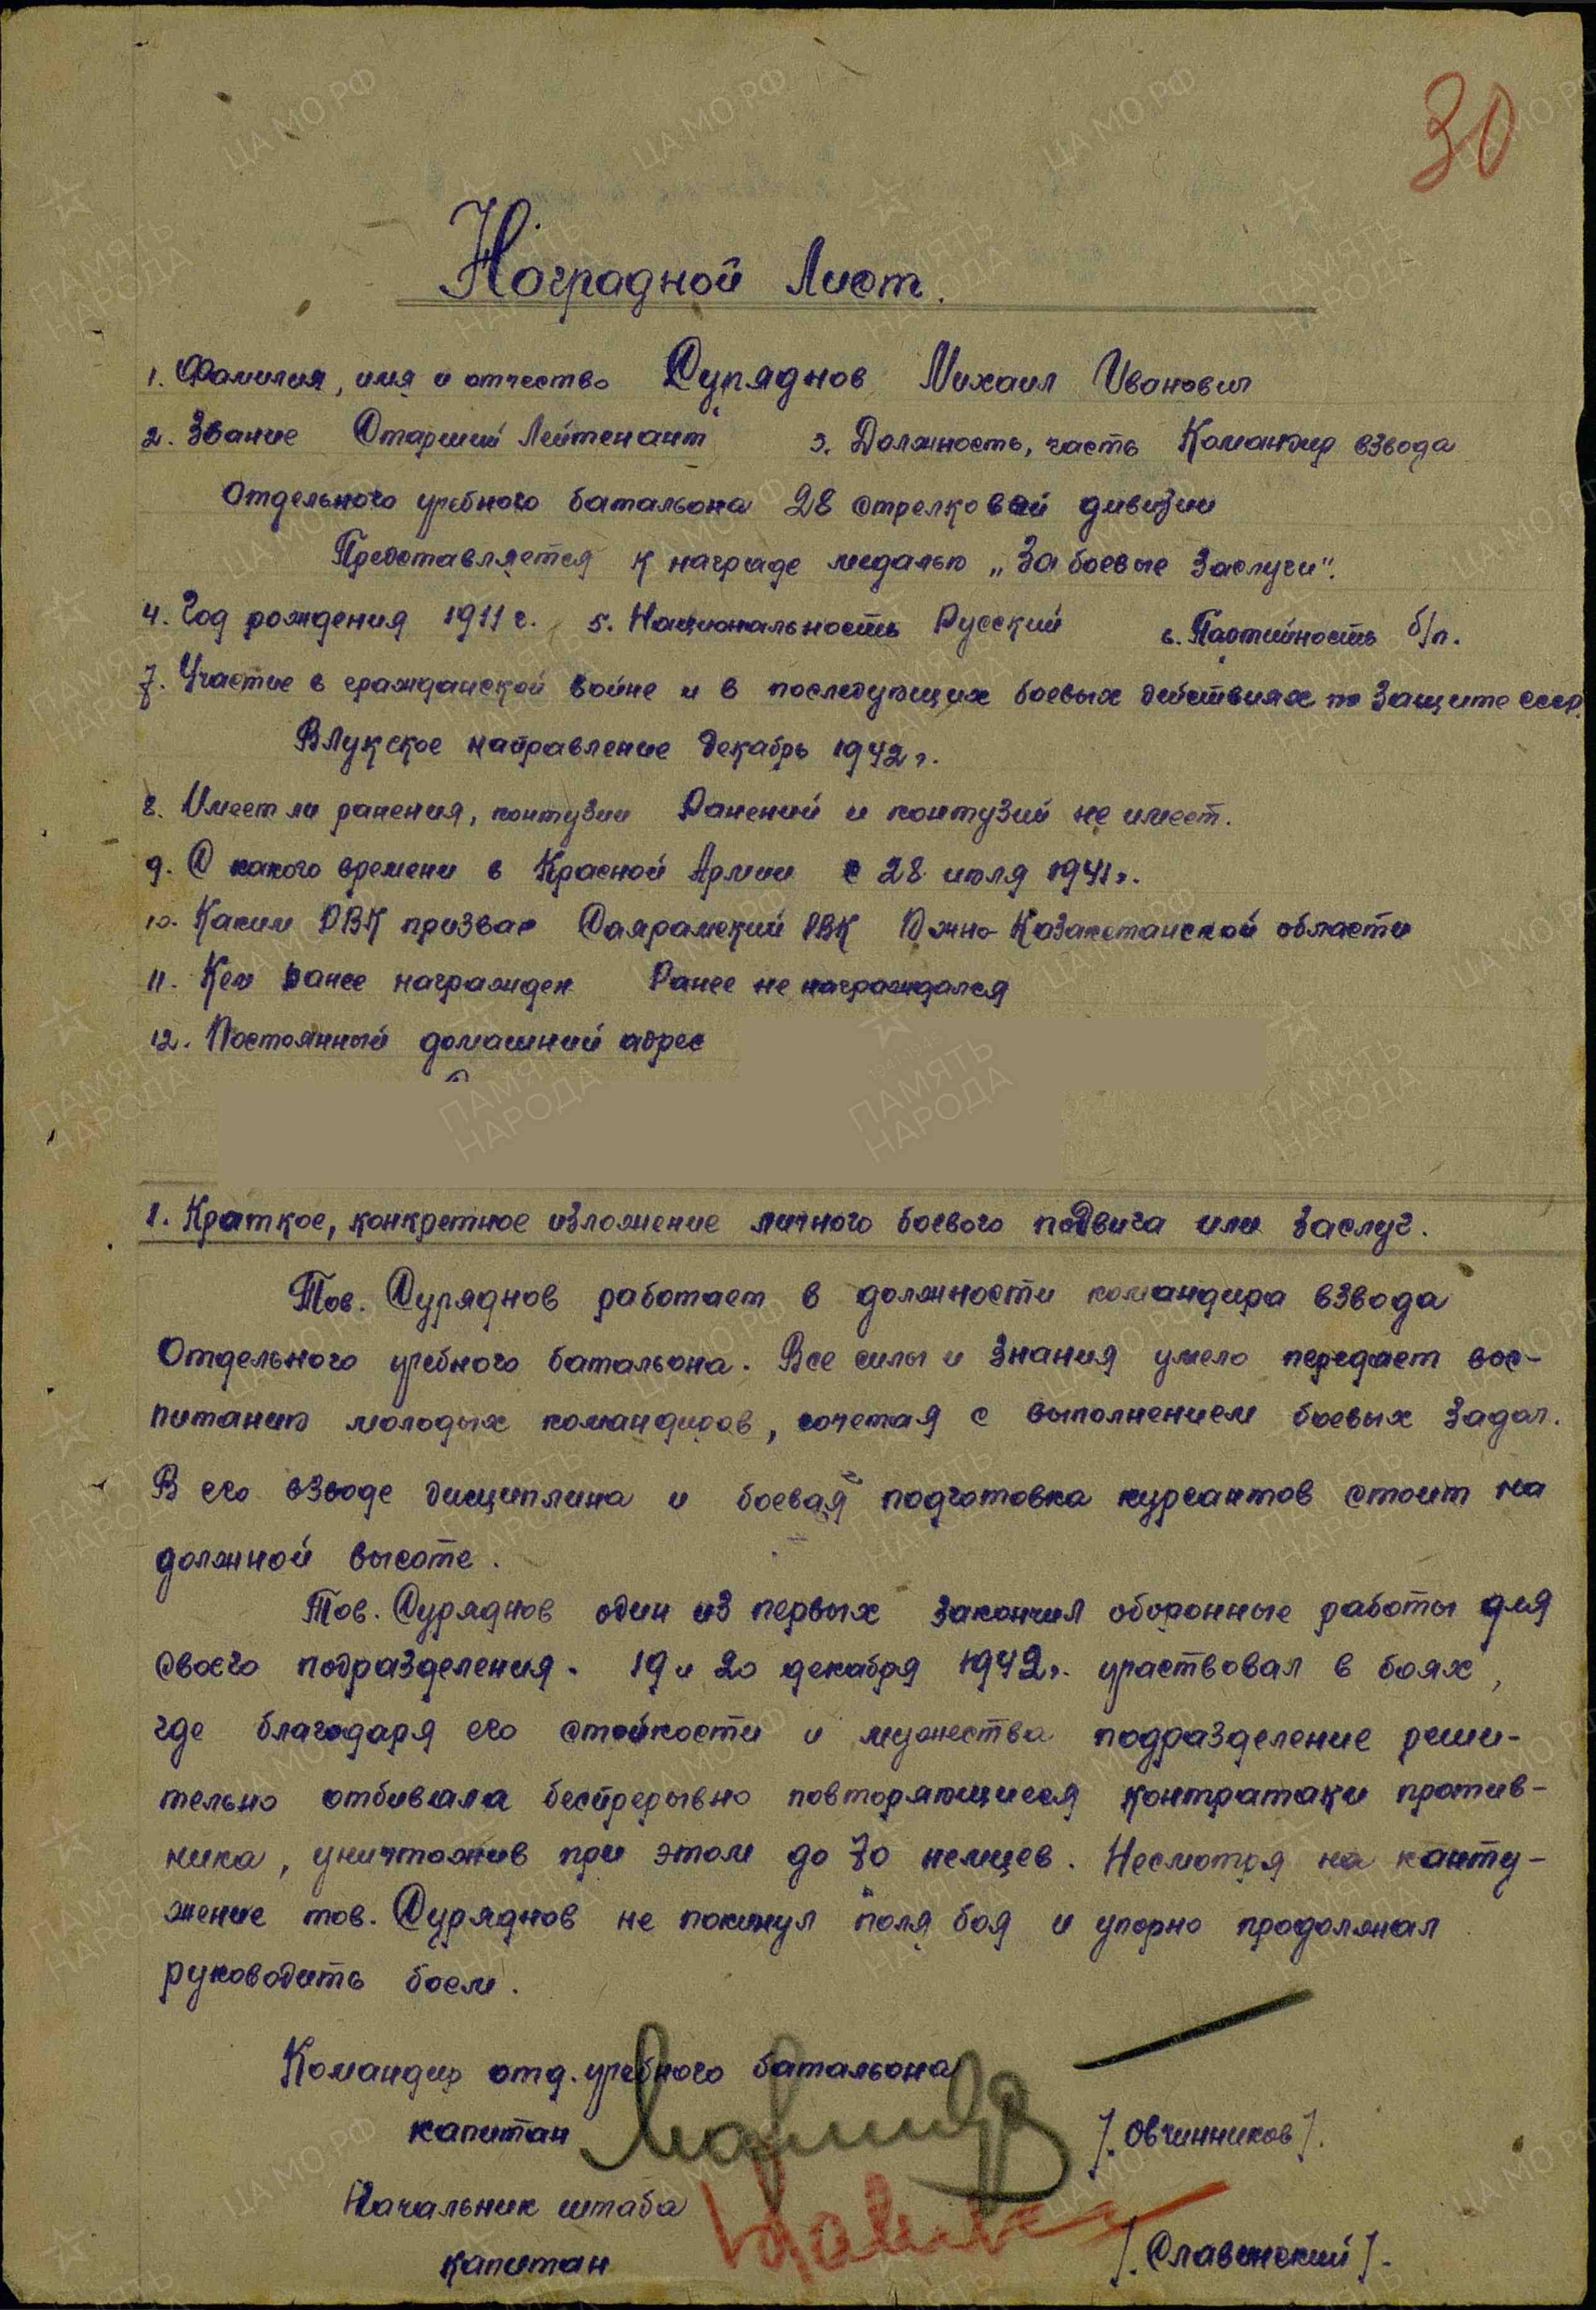 30
Наградной Лист.
1. Фамилия, имя и отчество Суряднов Михаил Иванович
2. Звание Старший Лейтенант 3. Должность, часть Командир взвода
Отдельного учебного батальона 28 стрелковой дивизии
Представляется к награде медалью „За боевые Заслуги".
4. Год рождения 1911 г. 5. Национальность Русский 6. Партийность б/п.
7. Участие в гражданской войне и в последующих боевых действиях по Защите СССР.
ВЛукское направление декабрь 1942 г.
8. Имеет ли ранения, контузии Ранений и контузий не имеет.
9. С какого времени в Красной Армии с 28 июля 1941 г.
10. Каким РВК призван Сайрамский РВК Южно-Казахстанской области
11. Кем ранее награжден Ранее не награждался
12. Постоянный домашний адрес
1. Краткое, конкретное изложение личного боевого подвига или Заслуг.
Тов. Суряднов работает в должности командира взвода
Отдельного учебного батальона. Все силы и Знания умело передает вос-
питанию молодых командиров, сочетая с выполнением боевых Задач.
В его взводе дисциплина и боевая подготовка курсантов стоит на
должной высоте.
Тов. Суряднов один из первых Закончил оборонные работы для
своего подразделения. 19 и 20 декабря 1942 г. участвовал в боях,
где благодаря его стойкости и мужества подразделение реши-
тельно отбивала беспрерывно повторяющиеся контратаки против-
ника, уничтожив при этом до 70 немцев. Несмотря на канту-
жение тов. Суряднов не покинул поля боя и упорно продолжал
руководить боем.
Командир отд. учебного батальона
капитан /. Овчинников /.
Начальник штаба
капитан /. Славенский /.